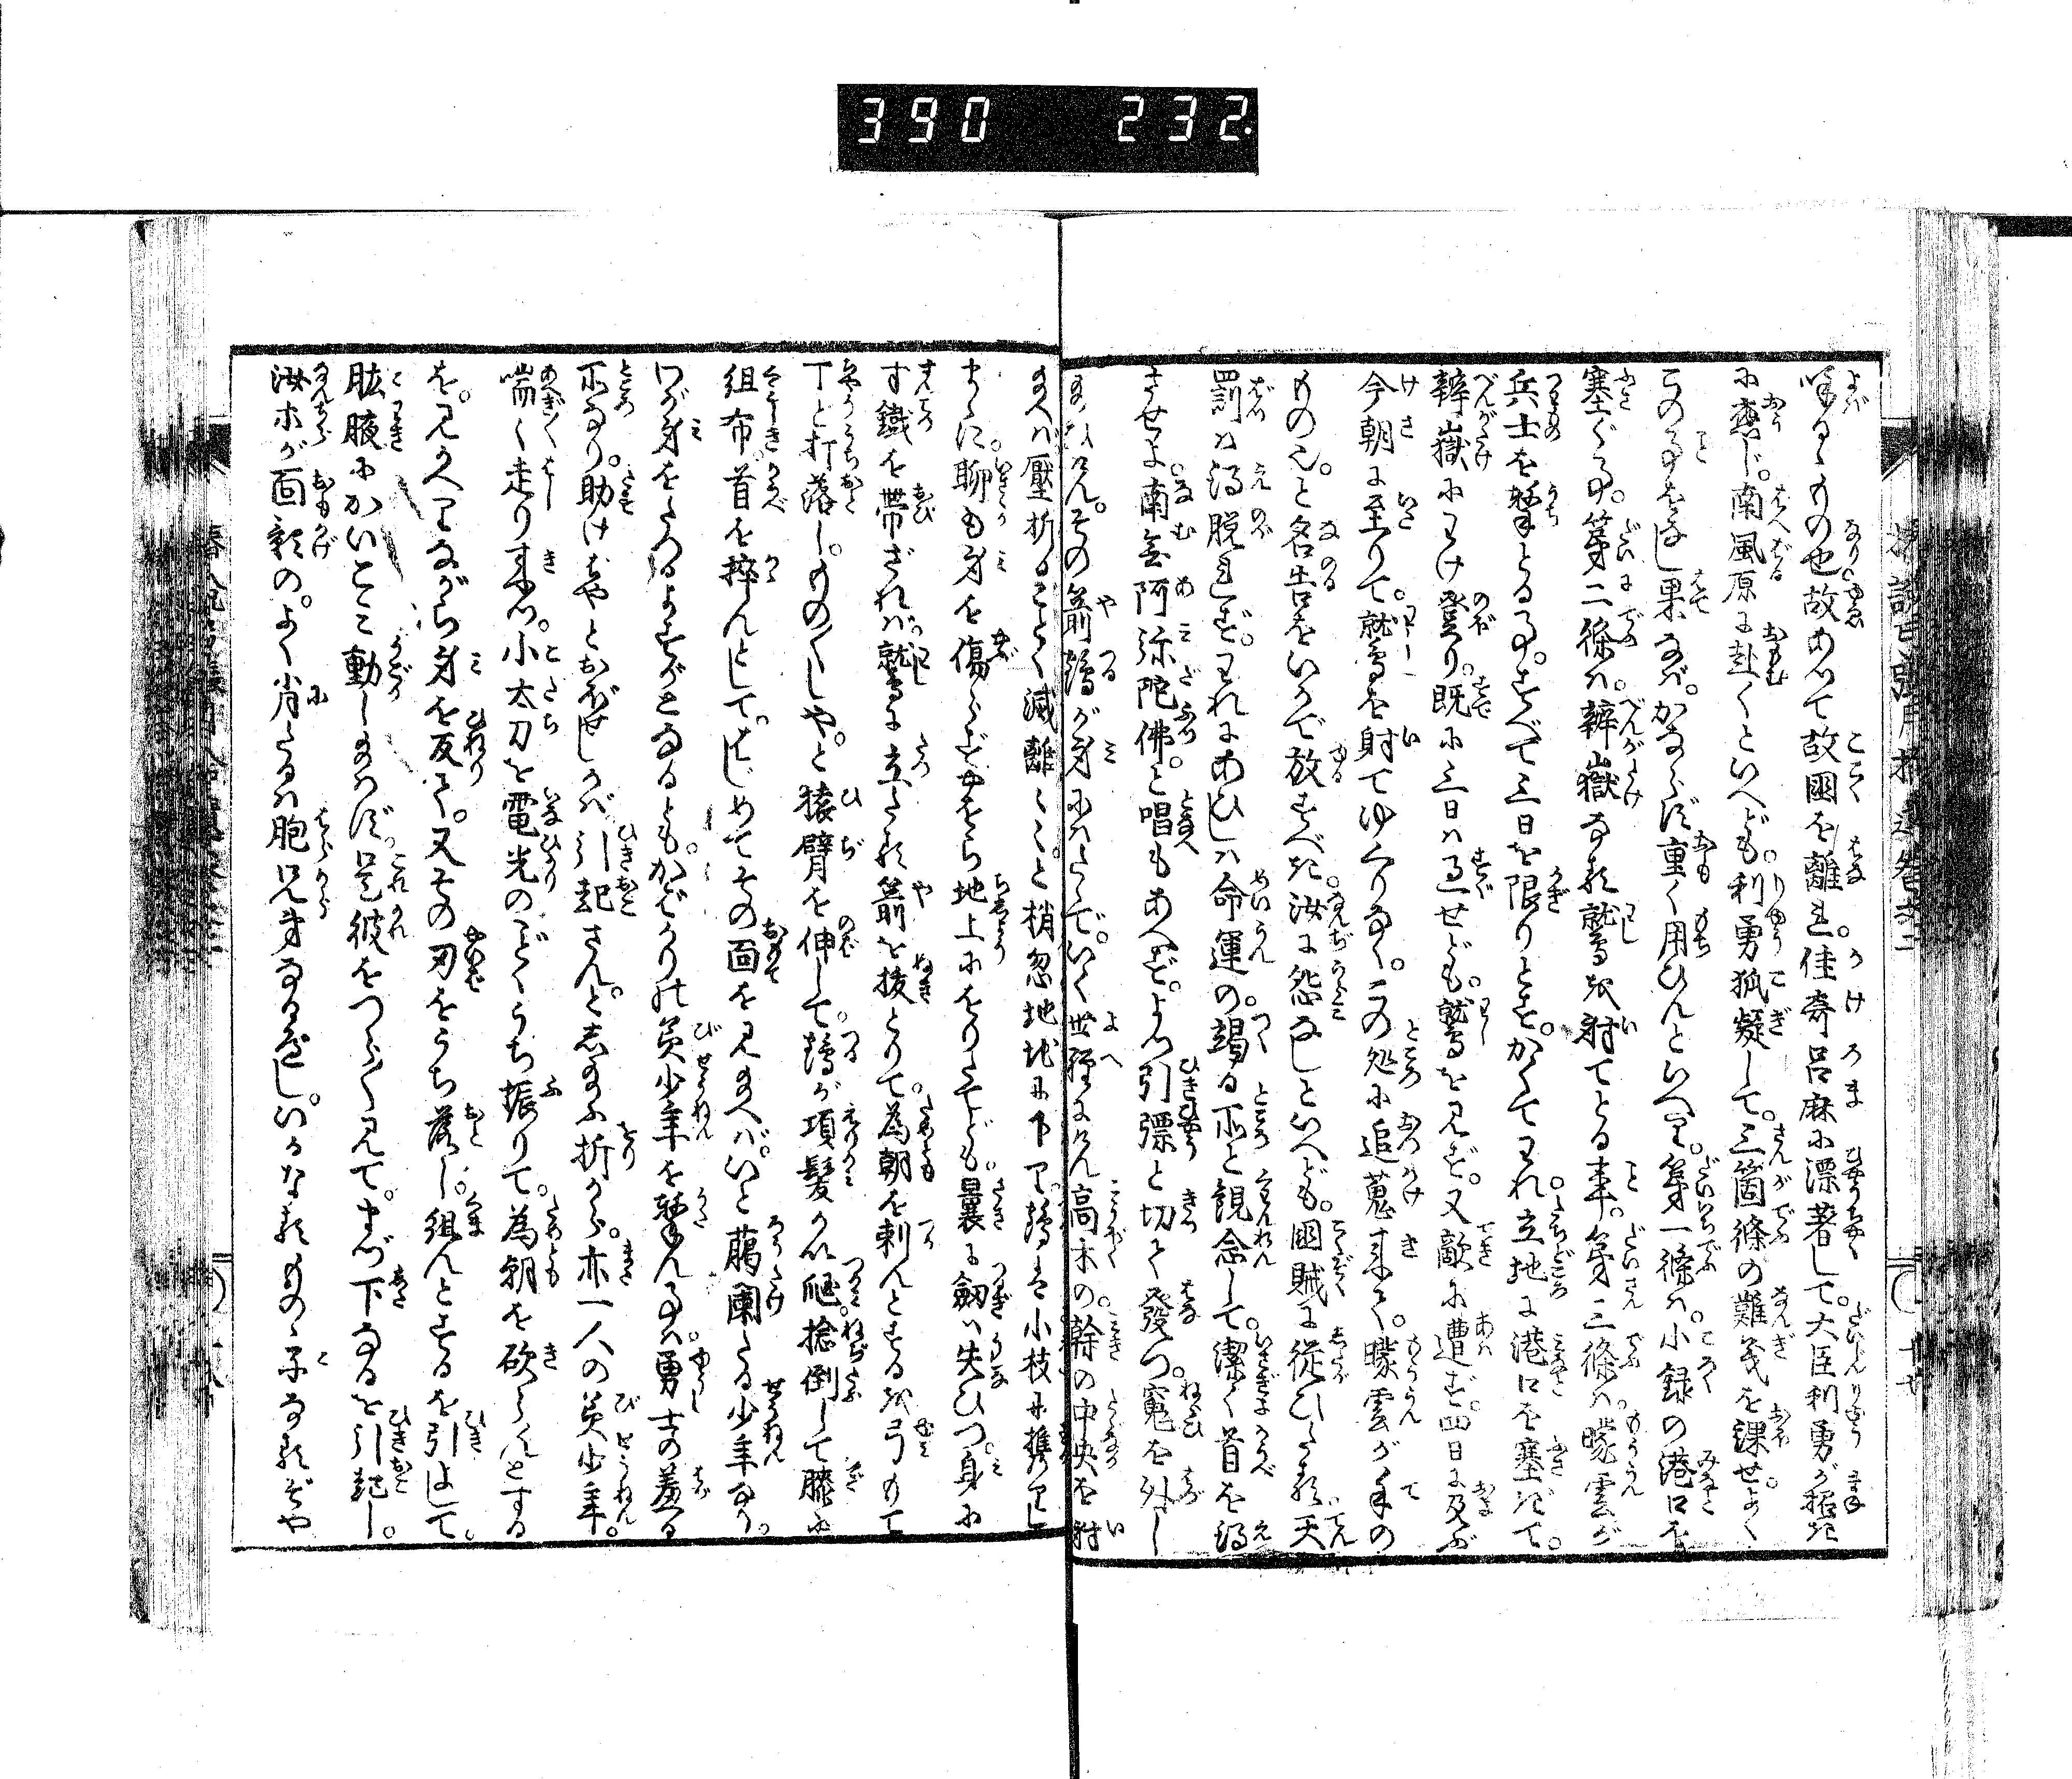 390 232.
呼るゝもの也故あつて故國を離れ。佳奇呂麻に漂著して。大臣利勇が招きに
應じ。南風原に赴くといへども。利勇狐疑して。三箇條の難義を課せ。よく
この事をなし果なば。かならず重く用ひんといへり。第一條は。小録の港口を
塞ぐ事。第二條は。辨嶽なる鷲を射てとる事。第三條は。曚雲が
兵士を撃とる事。すべて三日を限りとす。かくてわれ立地に港口を塞ぎて。
辨嶽にわけ登り。既に三日は過せども。鷲を見ず。又敵に遭ず。四日に及ぶ
今朝に至りて。鷲を射てゆくりなく。この処に追蒐来て。曚雲が手の
ものゝ。と名告をいかで放すべき。汝に怨なしといへども。國賊に従ひたる天
罰は得脱れず。われにあひしは命運の。竭る所と観念して。潔く首を得
させよ。南無阿弥陀佛。と唱もあへず。よつ引彍と切て發つ。寃を外し
けん。その箭鶴が身にはたゝで。いく世経にけん高木の。幹の中央を射
まへば壓折るごとく滅離々々と梢忽地地に下り。鶴は小枝に携りし
まゝに。聊も身を傷らず。やをら地上にをりたてども。曩に劔は失ひつ。身に
寸鐵を帯ざれば。鷲に立たる箭を抜とりて。為朝を刺んとするを弓もて
丁と打落し。ものものしや。と猿臂を伸して。鶴が項髪かい爬。捻倒して膝に
組布。首を捽んとして。はじめてその面を見給へば。いと﨟闌たる少年なり。
わが身をたつるよすがとなるとも。かばかりの美少年を撃ん事は。勇士の羞る
所なり。助けばやとおぼせしかば引起さん。と志給ふ折から。亦一人の美少年。
喘々走り来つ。小太刀を電光のごとくうち振りて。為朝を砍らんとする
を。見かへりながら身を反て。又その刃をうち落し。組んとするを引よして。
肱腋にかいこみ動し給はず。是彼をつらつら見て。まづ下なるを引起し。
汝等が面影の。よく肖たるは胞兄弟なるべし。いかなるものゝ子なるぞや